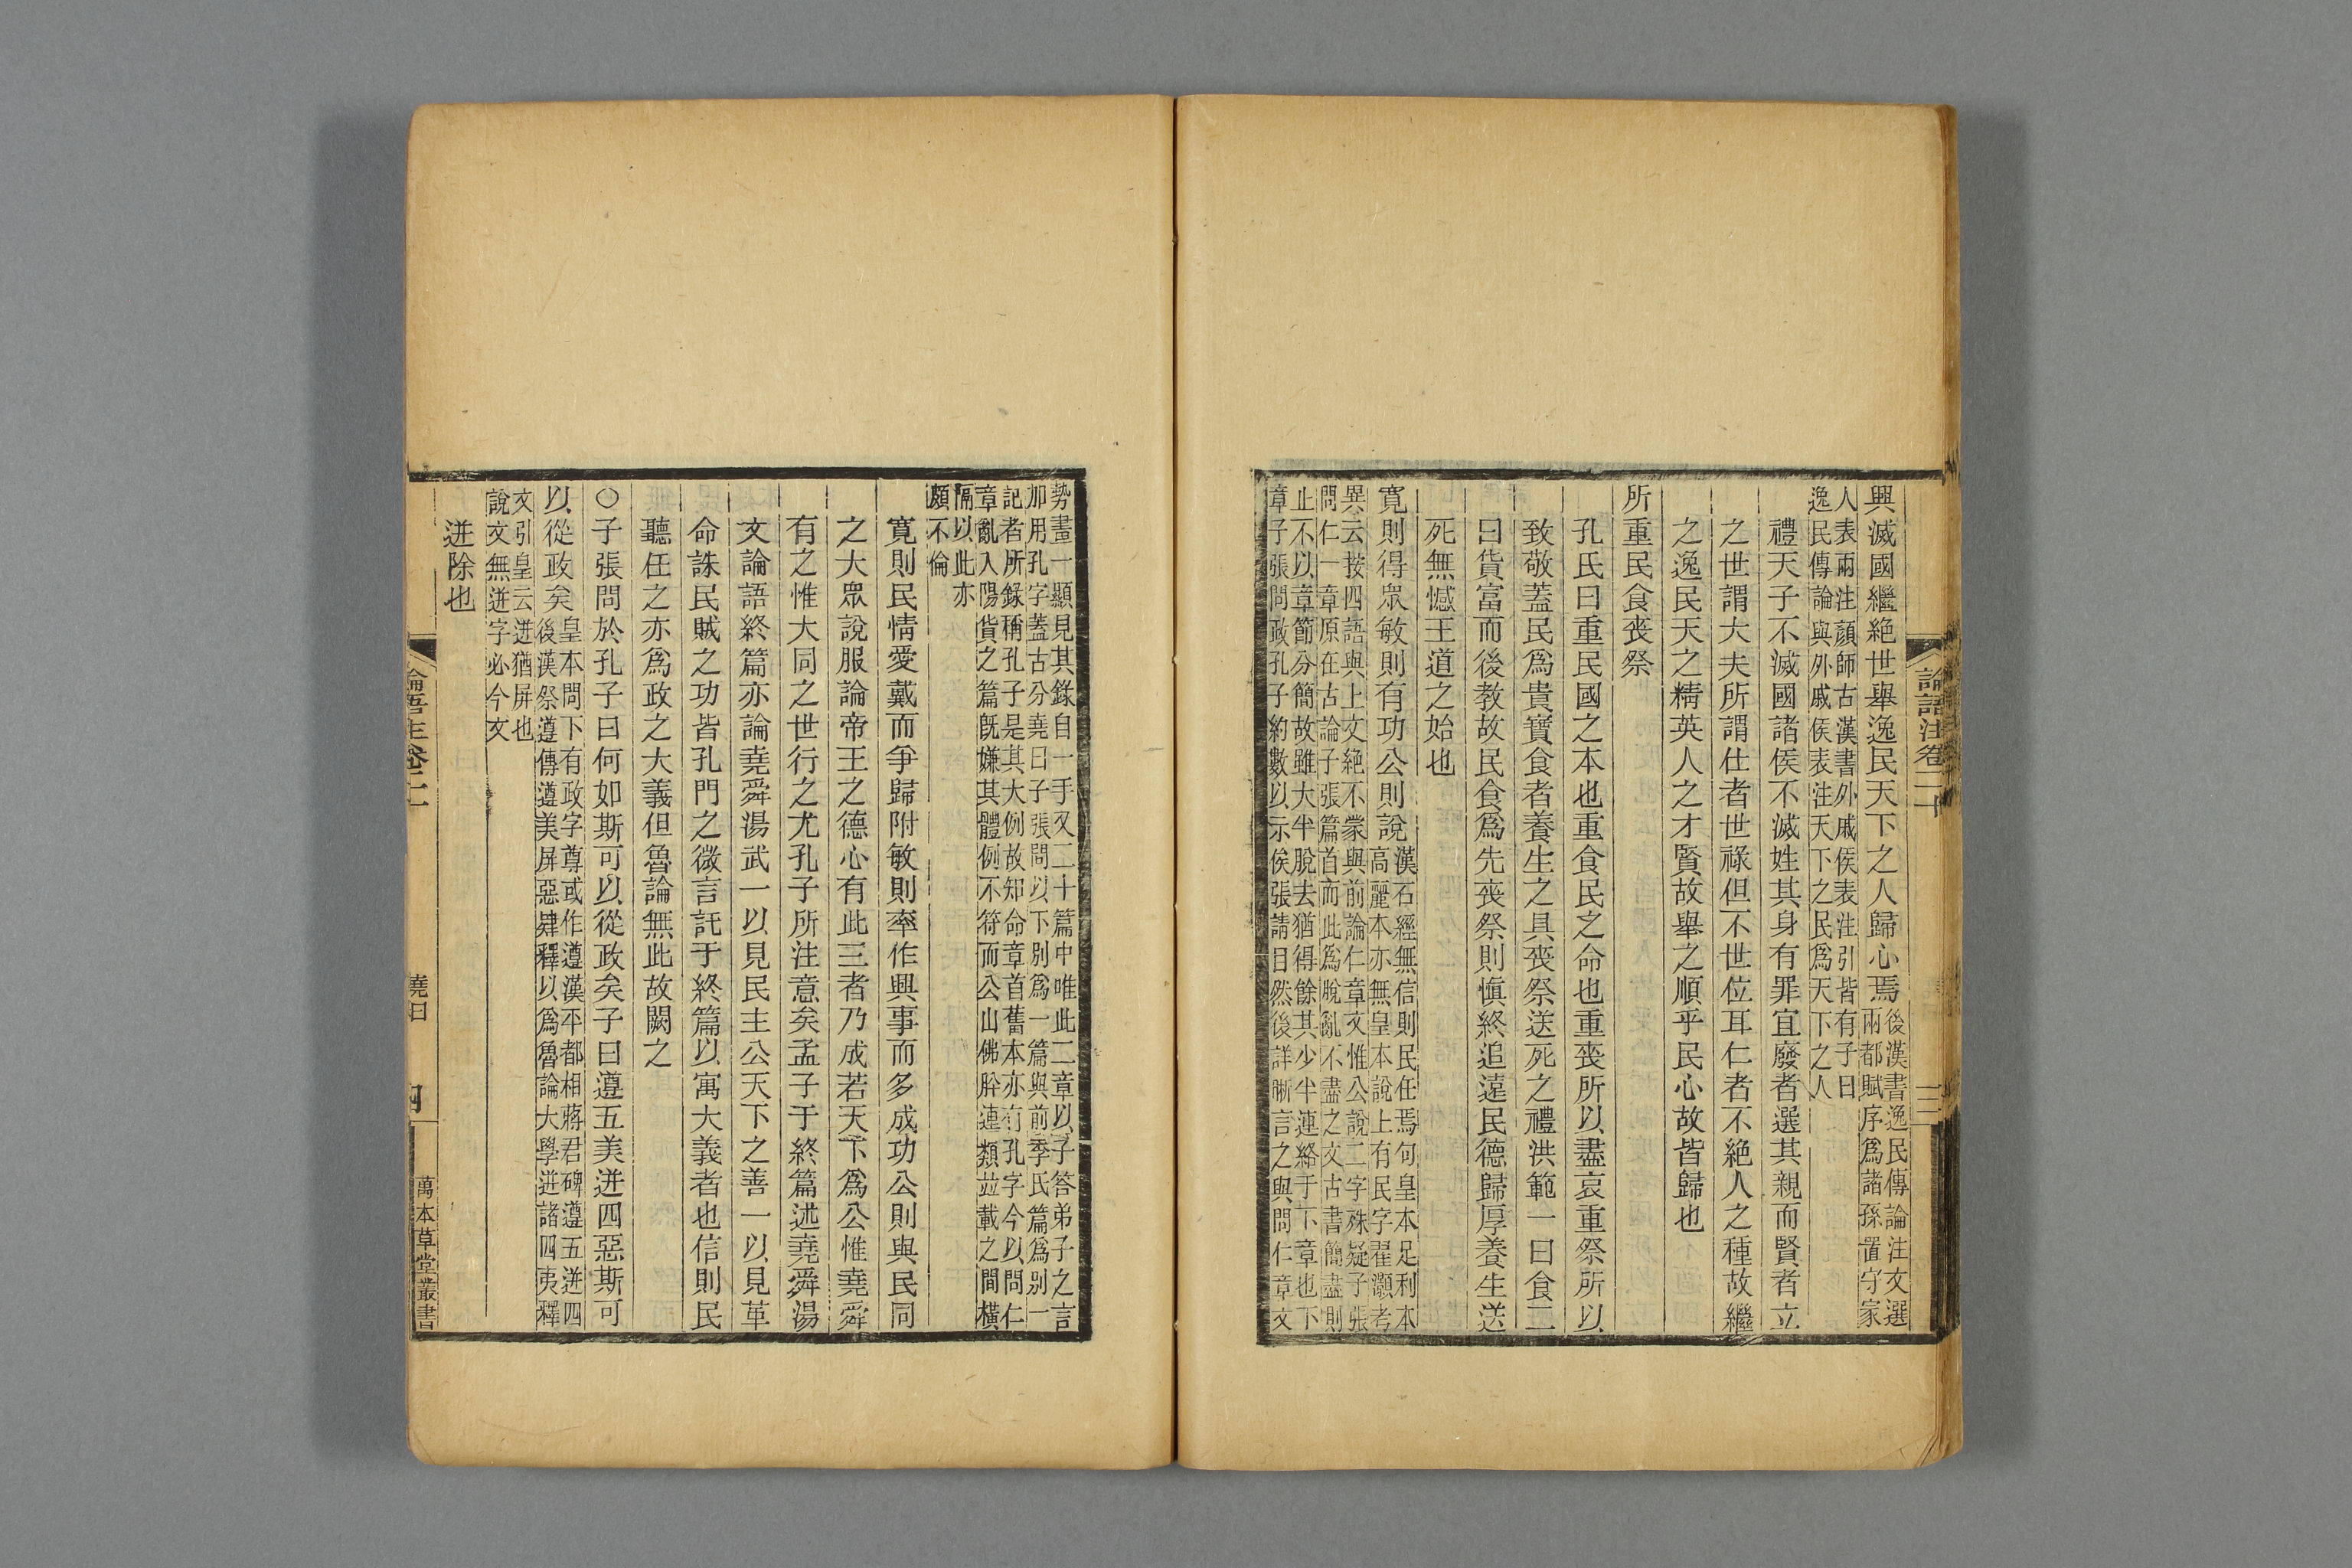 論語注卷二十
三
興滅國繼絕世舉逸民天下之人歸心焉
後漢書逸民傳論注文選
兩都賦序爲諸孫置守家
人表兩注顏師古漢書外戚侯表注引皆有子曰
逸民傳論與外戚侯表注天下之民爲天下之人
禮天子不滅國諸侯不滅姓其身有罪宜廢者選其親而賢者立
之世謂大夫所謂仕者世祿但不世位耳仁者不絕人之種故繼
之逸民天之精英人之才賢故舉之順乎民心故皆歸也
所重民食喪祭
孔氏曰重民國之本也重食民之命也重喪所以盡哀重祭所以
致敬蓋民爲貴寶食者養生之具喪祭送死之禮洪範一曰食二
曰貨富而後教故民食爲先喪祭則愼終追遠民德歸厚養生送
死無憾王道之始也
寬則得眾敏則有功公則說
漢石經無信則民任焉句皇本足利本
高麗本亦無皇本說上有民字翟灝考
異云按四語與上文絕不蒙與前論仁章文惟公說二字殊疑子張
問仁一章原在古論子張篇首而此爲脫亂不盡之文古書簡盡則
止不以章節分簡故雖大半脫去猶得餘其少半連絡于下章也下
章子張問政孔子約數以示俟張請目然後詳晰言之與問仁章文
勢畫一顯見其錄自一手又二十篇中唯此二章以子答弟子之言
加用孔字蓋古分堯曰子張問以下別爲一篇與前季氏篇爲別一
記者所錄稱孔子是其大例故知命章首舊本亦有孔字今以問仁
章亂入陽貨之篇旣嫌其體例不符而公山佛肸連類竝載之間橫
隔以此亦
頗不倫
寬則民情愛戴而爭歸附敏則率作興事而多成功公則與民同
之大眾說服論帝王之德心有此三者乃成若天下爲公惟堯舜
有之惟大同之世行之尤孔子所注意矣孟子于終篇述堯舜湯
文論語終篇亦論堯舜湯武一以見民主公天下之善一以見革
命誅民賊之功皆孔門之微言託于終篇以寓大義者也信則民
聽任之亦爲政之大義但魯論無此故闕之
○子張問於孔子曰何如斯可以從政矣子曰遵五美迸四惡斯可
以從政矣
皇本問下有政字尊或作遵漢平都相蔣君碑遵五迸四
後漢祭遵傳遵美屏惡肄釋以爲魯論大學迸諸四夷釋
文引皇云迸猶屏也
說文無迸字必今文
迸除也
論語注卷二十
堯曰
四
萬本草堂叢書